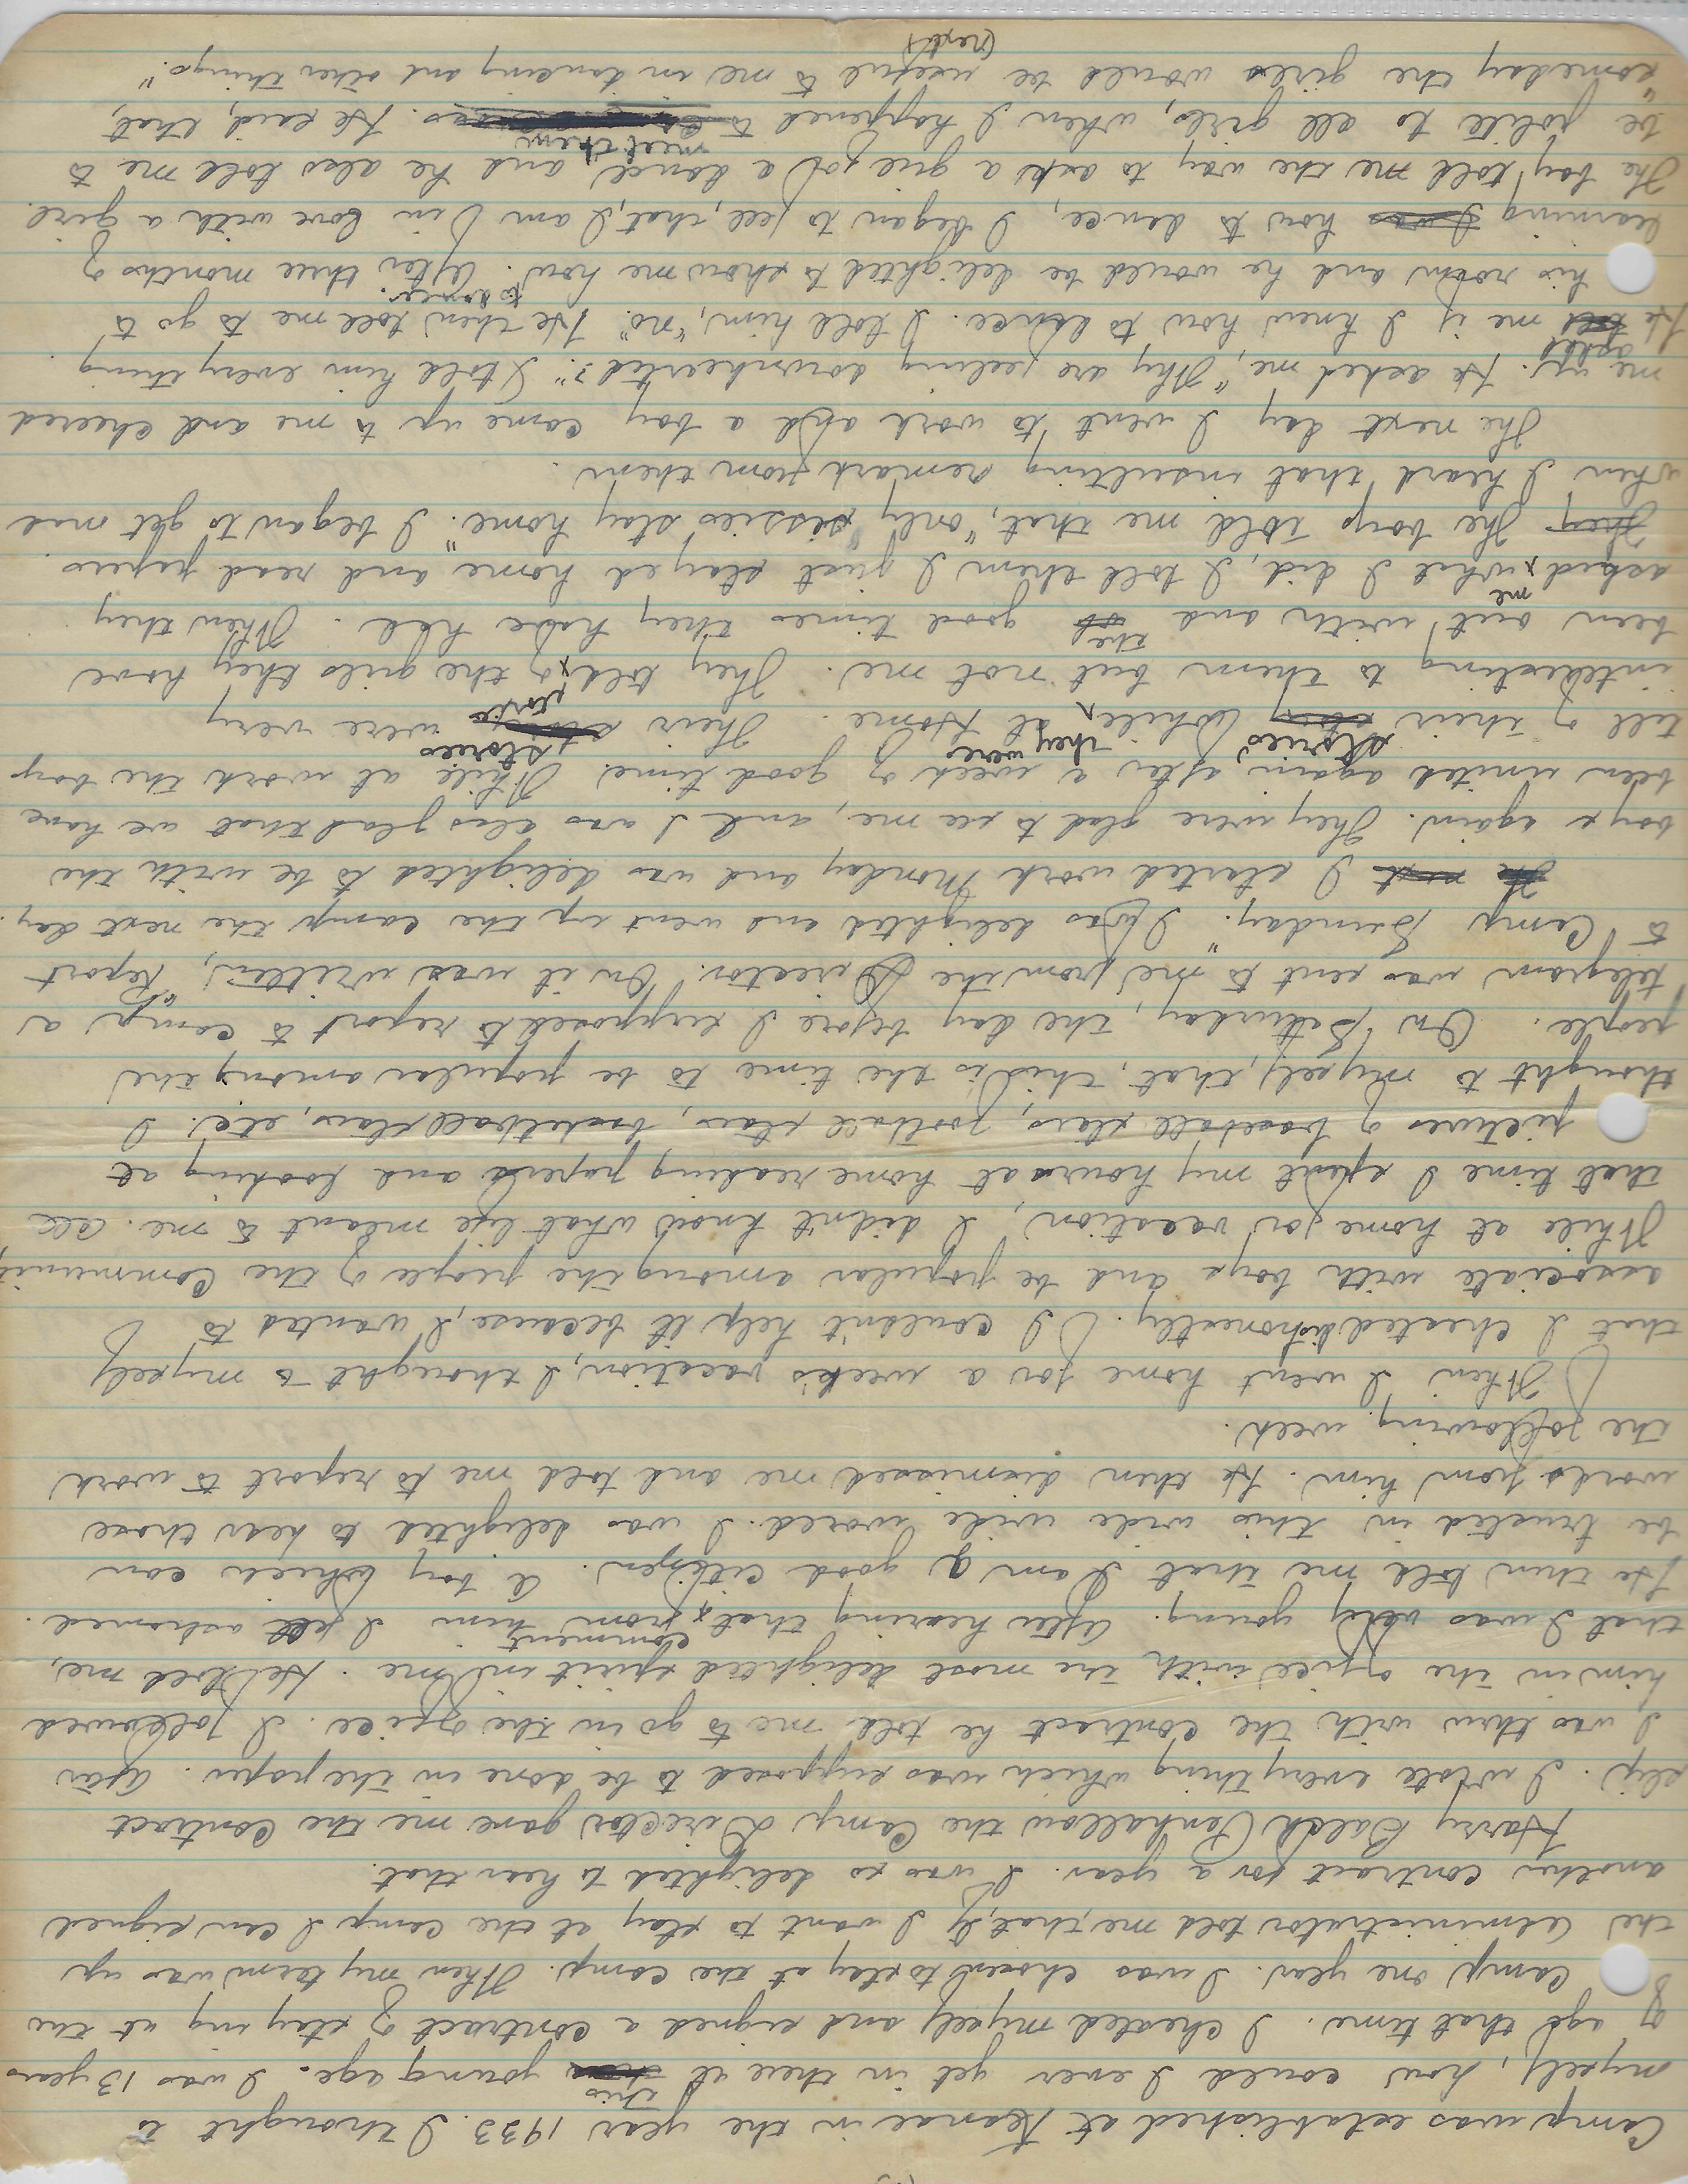 Camp was established at Keanae in the year 1933. I thought to
myself, how could I ever get in there at this young age. I was 13 years
of age that time. I cheated myself and signed a contract of staying at the
Camp one year. I was chosen to stay at the camp. When my term was up
the administrator told me, that, if I want to stay at the camp I can signed
another contract for a year. I was so delighted to hear that.
Harry Baldh Penhallow the Camp Director gave me the contract
slip. I wrote everything which was supposed to be done in the paper. After
I was thru with the contract he told me to go in the office. I followed
him in the office with the most delighted spirit in me. He told me,
that I was very young. After hearing that comment from him I felt ashamed.
He then told me that I am a good citizen. A boy which can
be trusted in this wide wide world. I was delighted to hear those
words from him. He then dismissed me and told me to report to work
the following week.
When I went home for a week's vacation, I thought to myself
that I cheated dishonestly. I couldn't help it because, I wanted to
associate with boys and be popular among the people of the Community.
While at home for vacation, I didn't know what life meant to me. All
that time I spent my hours at home reading papers and looking at
pictures of baseball stars, football stars, basketball stars, etc. I
thought to myself, that, this is the time to be popular among the
people. On Saturday, the day before I supposed to report to camp a
telegram was sent to me from the Director. On it was written, "Report
to Camp Sunday." I was delighted and went up the camp the next day.
I started work Monday and was delighted to be with the
boys again. They were glad to see me, and I was also glad that we have
been united again after a week of good time. While at work the boys
tell of their stories while they were at Home. Their stories were very
interesting to them but not me. They told of the girls they have
been out with and the good times they have had. When they
asked me what I did, I told them I just stayed home and read papers.
The boys told me that, "only sissies stay home." I began to get mad
when I heard that insulting remark from them.
The next day I went to work and a boy came up to me and cheered
me up. He asked me, "Why are feeling downhearted?" I told him everything
He asked me if I knew how to dance. I told him, "no." He then told me to go to
his room and he would be delighted to show me how to dance. After three months of
learning how to dance, I began to feel, that, I am in love with a girl.
The boy told me the way to ask a girl for a dance, and he also told me to
be polite to all girls, when I happened to meet them. He said, that,
"someday the girls would be useful to me in dancing and other things."
(next)